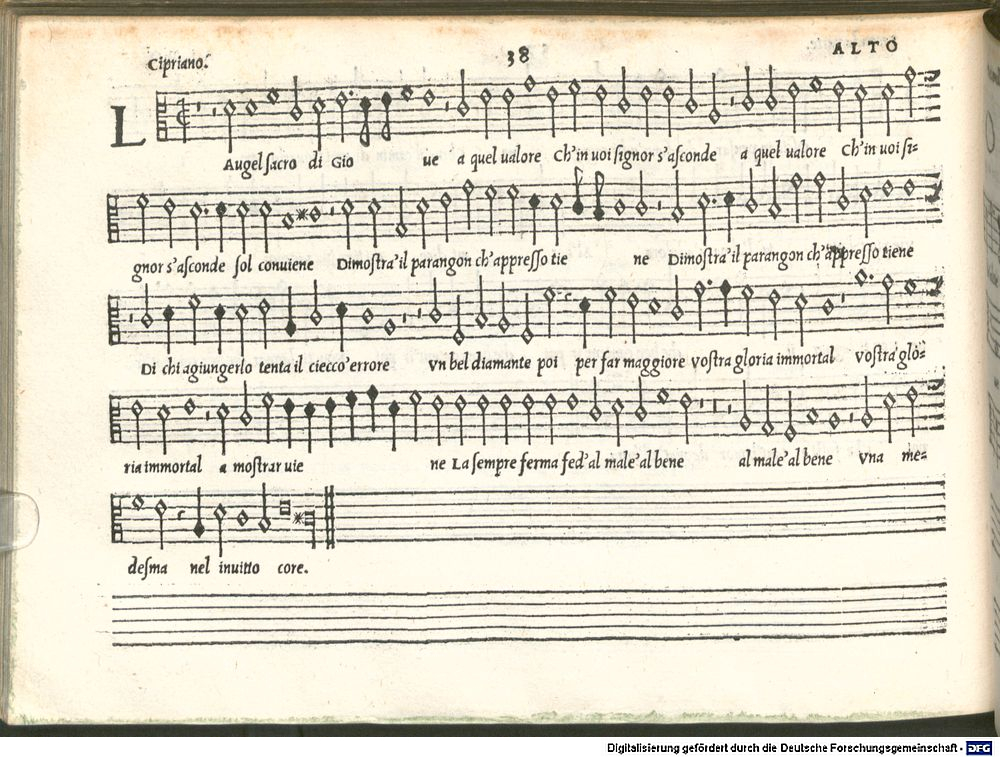 Cipriano.
38
ALTO
L
Augel sacro di Gio ue a quel ualore Ch'in uoi signor s'asconde a quel ualore Ch'in uoi si=
gnor s'asconde sol conuiene Dimostra'il parangon ch'appresso tie ne Dimostra'il parangon ch'appresso tiene
Di chi agiungerlo tenta il ciecco'errore vn bel diamante poi per far maggiore vostra gloria immortal vostra glo=
ria immortal a mostrar uie ne La sempre ferma fed'al male'al bene al male'al bene vna me=
desma nel inuitto core.
Digitalisierung gefördert durch die Deutsche Forschungsgemeinschaft - DFG